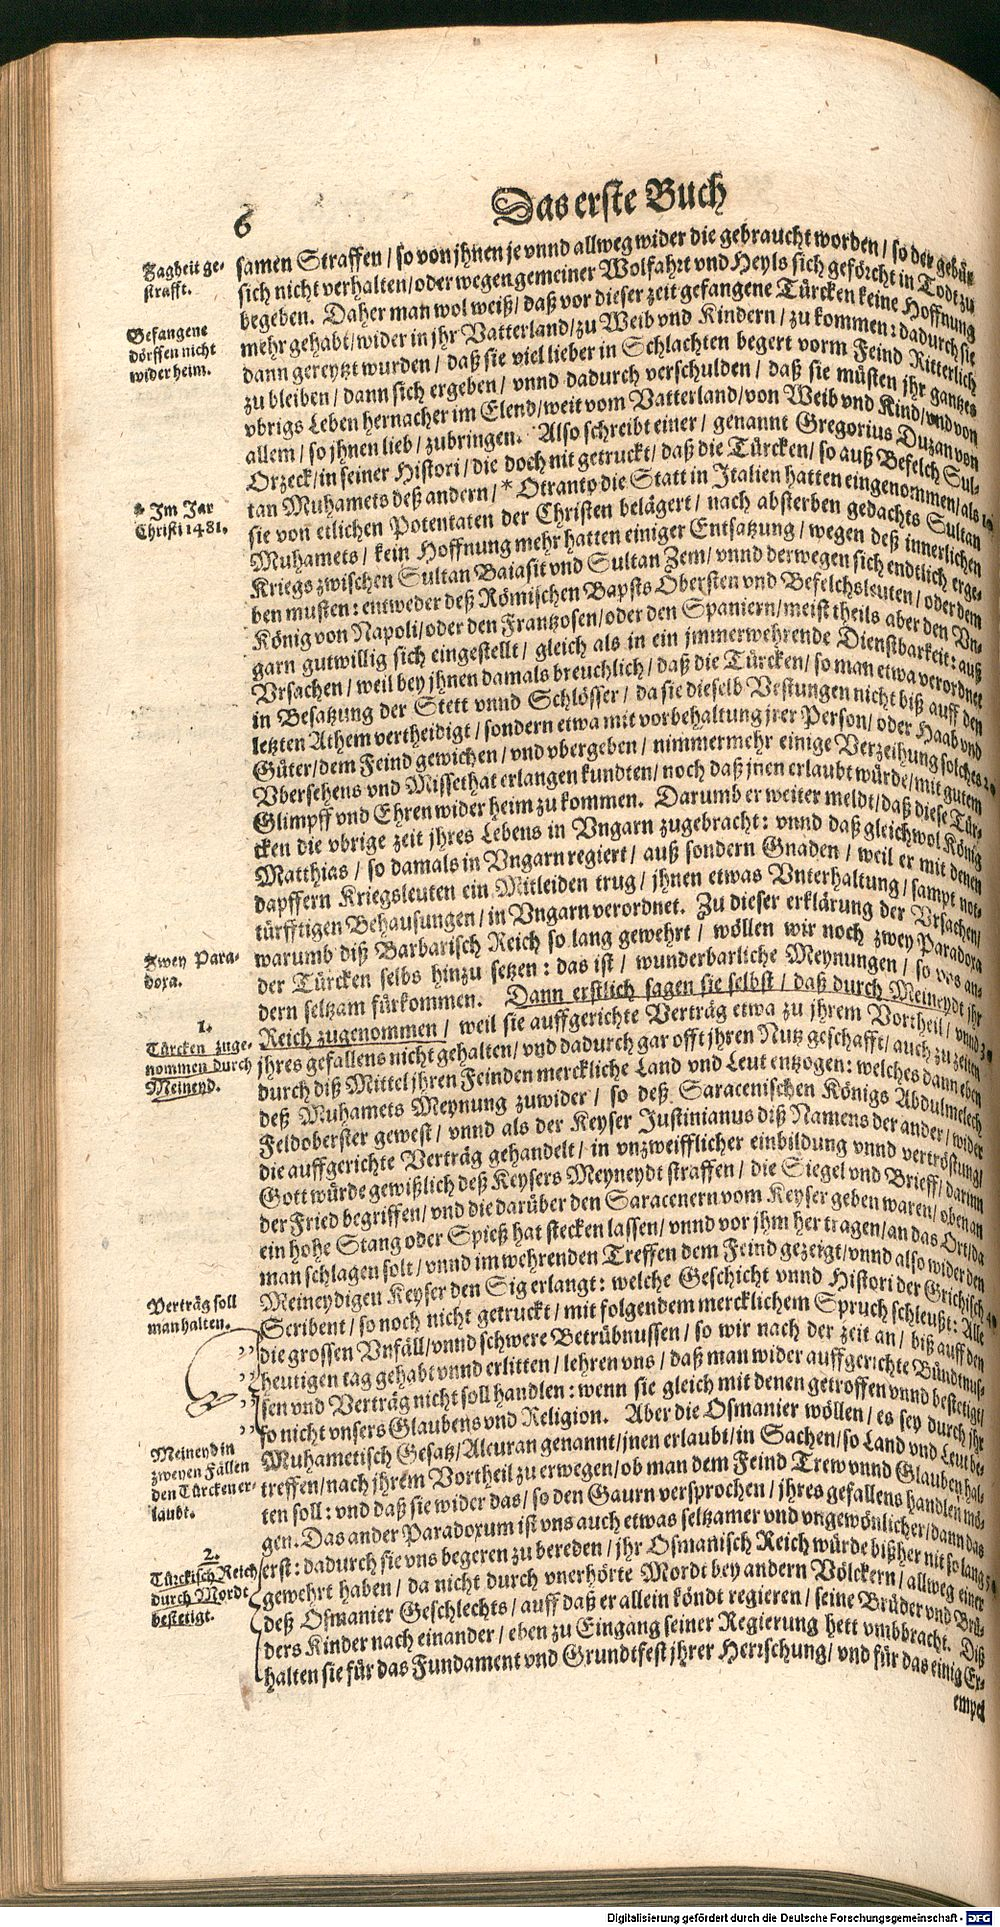 6
Das erste Buch
samen Straffen / so von jhnen je vnnd allweg wider die gebraucht worden / so der gebür
sich nicht verhalten / oder wegen gemeiner Wolfahrt vnd Heyls sich geförcht in Todt zu
begeben. Daher man wol weiß / daß vor dieser zeit gefangene Türcken keine Hoffnung
mehr gehabt / wider in jhr Vatterland / zu Weib vnd Kindern / zu kommen: dadurch sie
dann gereytzt wurden / daß sie viel lieber in Schlachten begert vorm Feind Ritterlich
zu bleiben / dann sich ergeben / vnnd dadurch verschulden / daß sie müsten jhr gantzes
vbrigs Leben hernacher im Elend / weit vom Vatterland / von Weib vnd Kind / vnd von
allem / so jhnen lieb / zubringen. Also schreibt einer / genannt Gregorius Duzan von
Orzeck / in seiner Histori / die doch nit getruckt / daß die Türcken / so auß Befelch Sul-
tan Muhamets deß andern / * Otranto die Statt in Italien hatten eingenommen / als
sie von etlichen Potentaten der Christen belägert / nach absterben gedachts Sultan
Muhamets / kein Hoffnung mehr hatten einiger Entsatzung / wegen deß innerlichen
Kriegs zwischen Sultan Baiasit vnd Sultan Zem / vnnd derwegen sich endtlich erge-
ben musten: entweder deß Römischen Bapsts Obersten vnd Befelchsleuten / oder dem
König von Napoli / oder den Frantzosen / oder den Spaniern / meist theils aber den Vn-
garn gutwillig sich eingestellt / gleich als in ein jmmerwehrende Dienstbarkeit: auß
Vrsachen / weil bey jhnen damals breuchlich / daß die Türcken / so man etwa verordnet
in Besatzung der Stett vnnd Schlösser / da sie dieselb Vestungen nicht biß auff den
letzten Athem vertheidigt / sondern etwa mit vorbehaltung jrer Person / oder Haab vnd
Güter / dem Feind gewichen / vnd vbergeben / nimmermehr einige Verzeihung solches
Vbersehens vnd Missethat erlangen kundten / noch daß jnen erlaubt würde / mit gutem
Glimpff vnd Ehren wider heim zu kommen. Darumb er weiter meldt / daß diese Tür-
cken die vbrige zeit jhres Lebens in Vngarn zugebracht: vnnd daß gleichwol König
Matthias / so damals in Vngarn regiert / auß sondern Gnaden / weil er mit denen
dapffern Kriegsleuten ein Mitleiden trug / jhnen etwas Vnterhaltung / sampt not-
türfftigen Behausungen / in Vngarn verordnet. Zu dieser erklärung der Vrsachen /
warumb diß Barbarisch Reich so lang gewehrt / wöllen wir noch zwey Paradoxa
der Türcken selbs hinzu setzen: das ist / wunderbarliche Meynungen / so vns an-
dern seltzam fürkommen. Dann erstlich sagen sie selbst / daß durch Meineydt jhr
Reich zugenommen / weil sie auffgerichte Verträg etwa zu jhrem Vortheil / vnnd
jhres gefallens nicht gehalten / vnd dadurch gar offt jhren Nutz geschafft / auch zu zeiten
durch diß Mittel jhren Feinden merckliche Land vnd Leut entzogen: welches dann eben
deß Muhamets Meynung zuwider / so deß Saracenischen Königs Abdulmelech
Feldoberster gewest / vnnd als der Keyser Justinianus diß Namens der ander / wider
die auffgerichte Verträg gehandelt / in vnzweifflicher einbildung vnnd vertröstung /
Gott würde gewißlich deß Keysers Meyneydt straffen / die Siegel vnd Brieff / darinn
der Fried begriffen / vnd die darüber den Saracenern vom Keyser geben waren / oben an
ein hohe Stang oder Spieß hat stecken lassen / vnnd vor jhm her tragen / an das Ort / da
man schlagen solt / vnnd im wehrenden Treffen dem Feind gezeigt / vnnd also wider den
Meineydigen Keyser den Sig erlangt: welche Geschicht vnnd Histori der Grichisch
Scribent / so noch nicht getruckt / mit folgendem mercklichem Spruch schleußt: Alle
die grossen Vnfäll / vnnd schwere Betrübnussen / so wir nach der zeit an / biß auff den
heutigen tag gehabt vnnd erlitten / lehren vns / daß man wider auffgerichte Bündtnus-
sen vnd Verträg nicht soll handlen: wenn sie gleich mit denen getroffen vnnd bestetigt /
so nicht vnsers Glaubens vnd Religion. Aber die Osmanier wöllen / es sey durch jhr
Muhametisch Gesatz / Alcuran genannt / jnen erlaubt / in Sachen / so Land vnd Leut be-
treffen / nach jhrem Vortheil zu erwegen / ob man dem Feind Trew vnnd Glauben hal-
ten soll: vnd daß sie wider das / so den Gaurn versprochen / jhres gefallens handlen mö-
gen. Das ander Paradoxum ist vns auch etwas seltzamer vnd vngewönlicher / dann das
erst: dadurch sie vns begeren zu bereden / jhr Osmanisch Reich würde bißher nit so lang
gewehrt haben / da nicht durch vnerhörte Mordt bey andern Völckern / allweg einer
deß Osmanier Geschlechts / auff daß er allein köndt regieren / seine Brüder vnd Brü-
ders Kinder nach einander / eben zu Eingang seiner Regierung hett vmbbracht. Diß
halten sie für das Fundament vnd Grundtfest jhrer Herrschung / vnd für das einig Ex-
empel
Zagheit ge-
strafft.
Gefangene
dörffen nicht
wider heim.
* Im Jar
Christi 1481.
Zwey Para-
doxa.
1.
Türcken zuge-
nommen durch
Meineyd.
Verträg soll
man halten.
Meineyd in
zweyen Fällen
den Türcken er-
laubt.
2.
Türckisch Reich
durch Mordt
bestetigt.
Digitalisierung gefördert durch die Deutsche Forschungsgemeinschaft - DFG